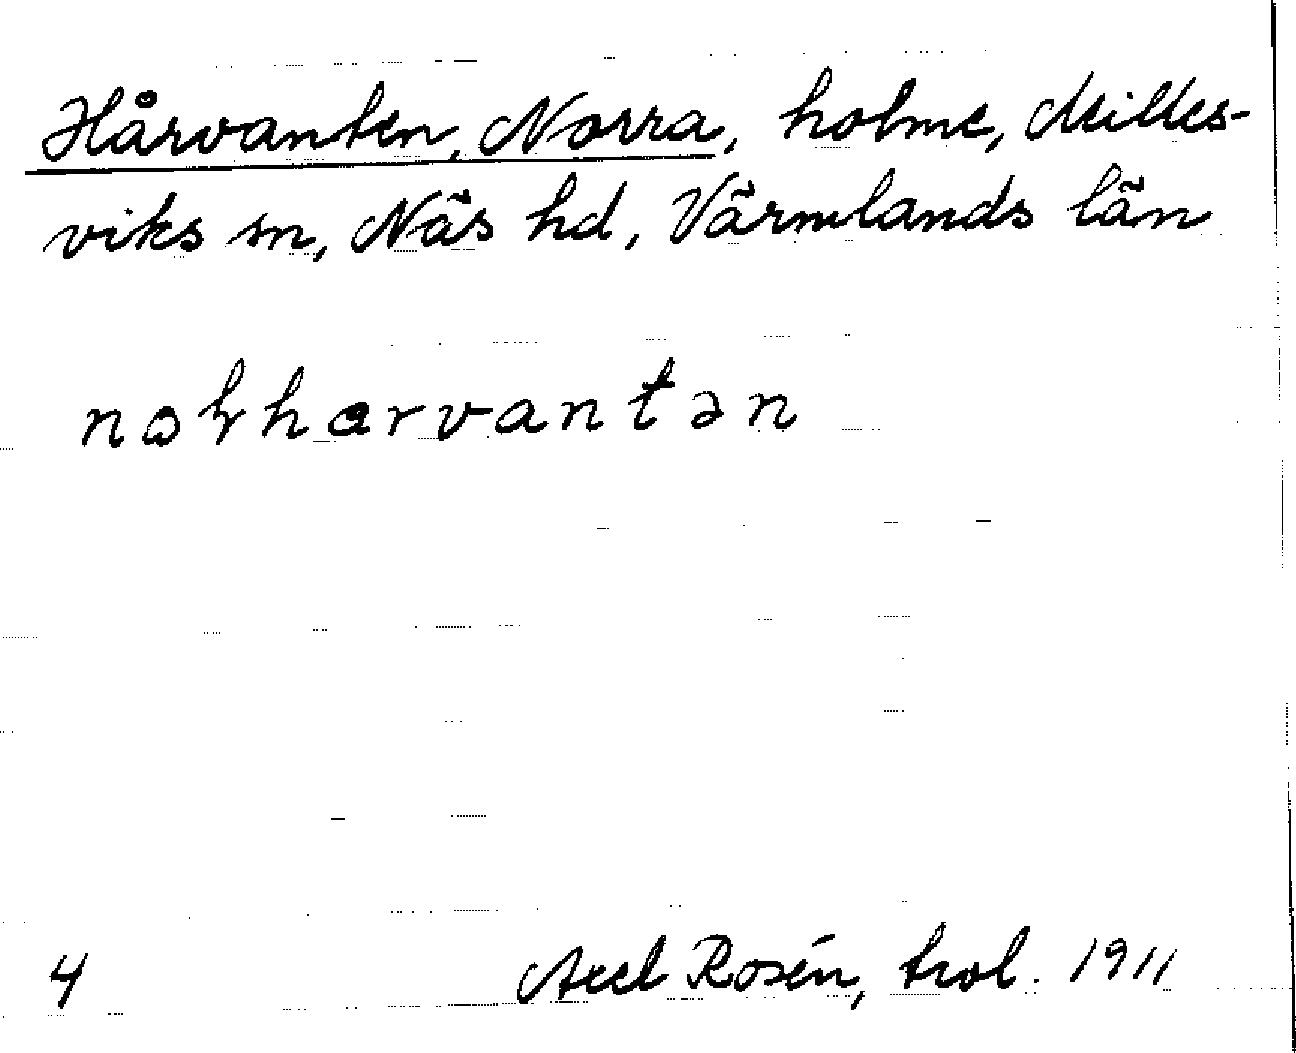 Hårvanten, Norra, holme, Milles-
viks sn, Näs hd, Värmlands län
4 Axel Rosén, trol. 1911